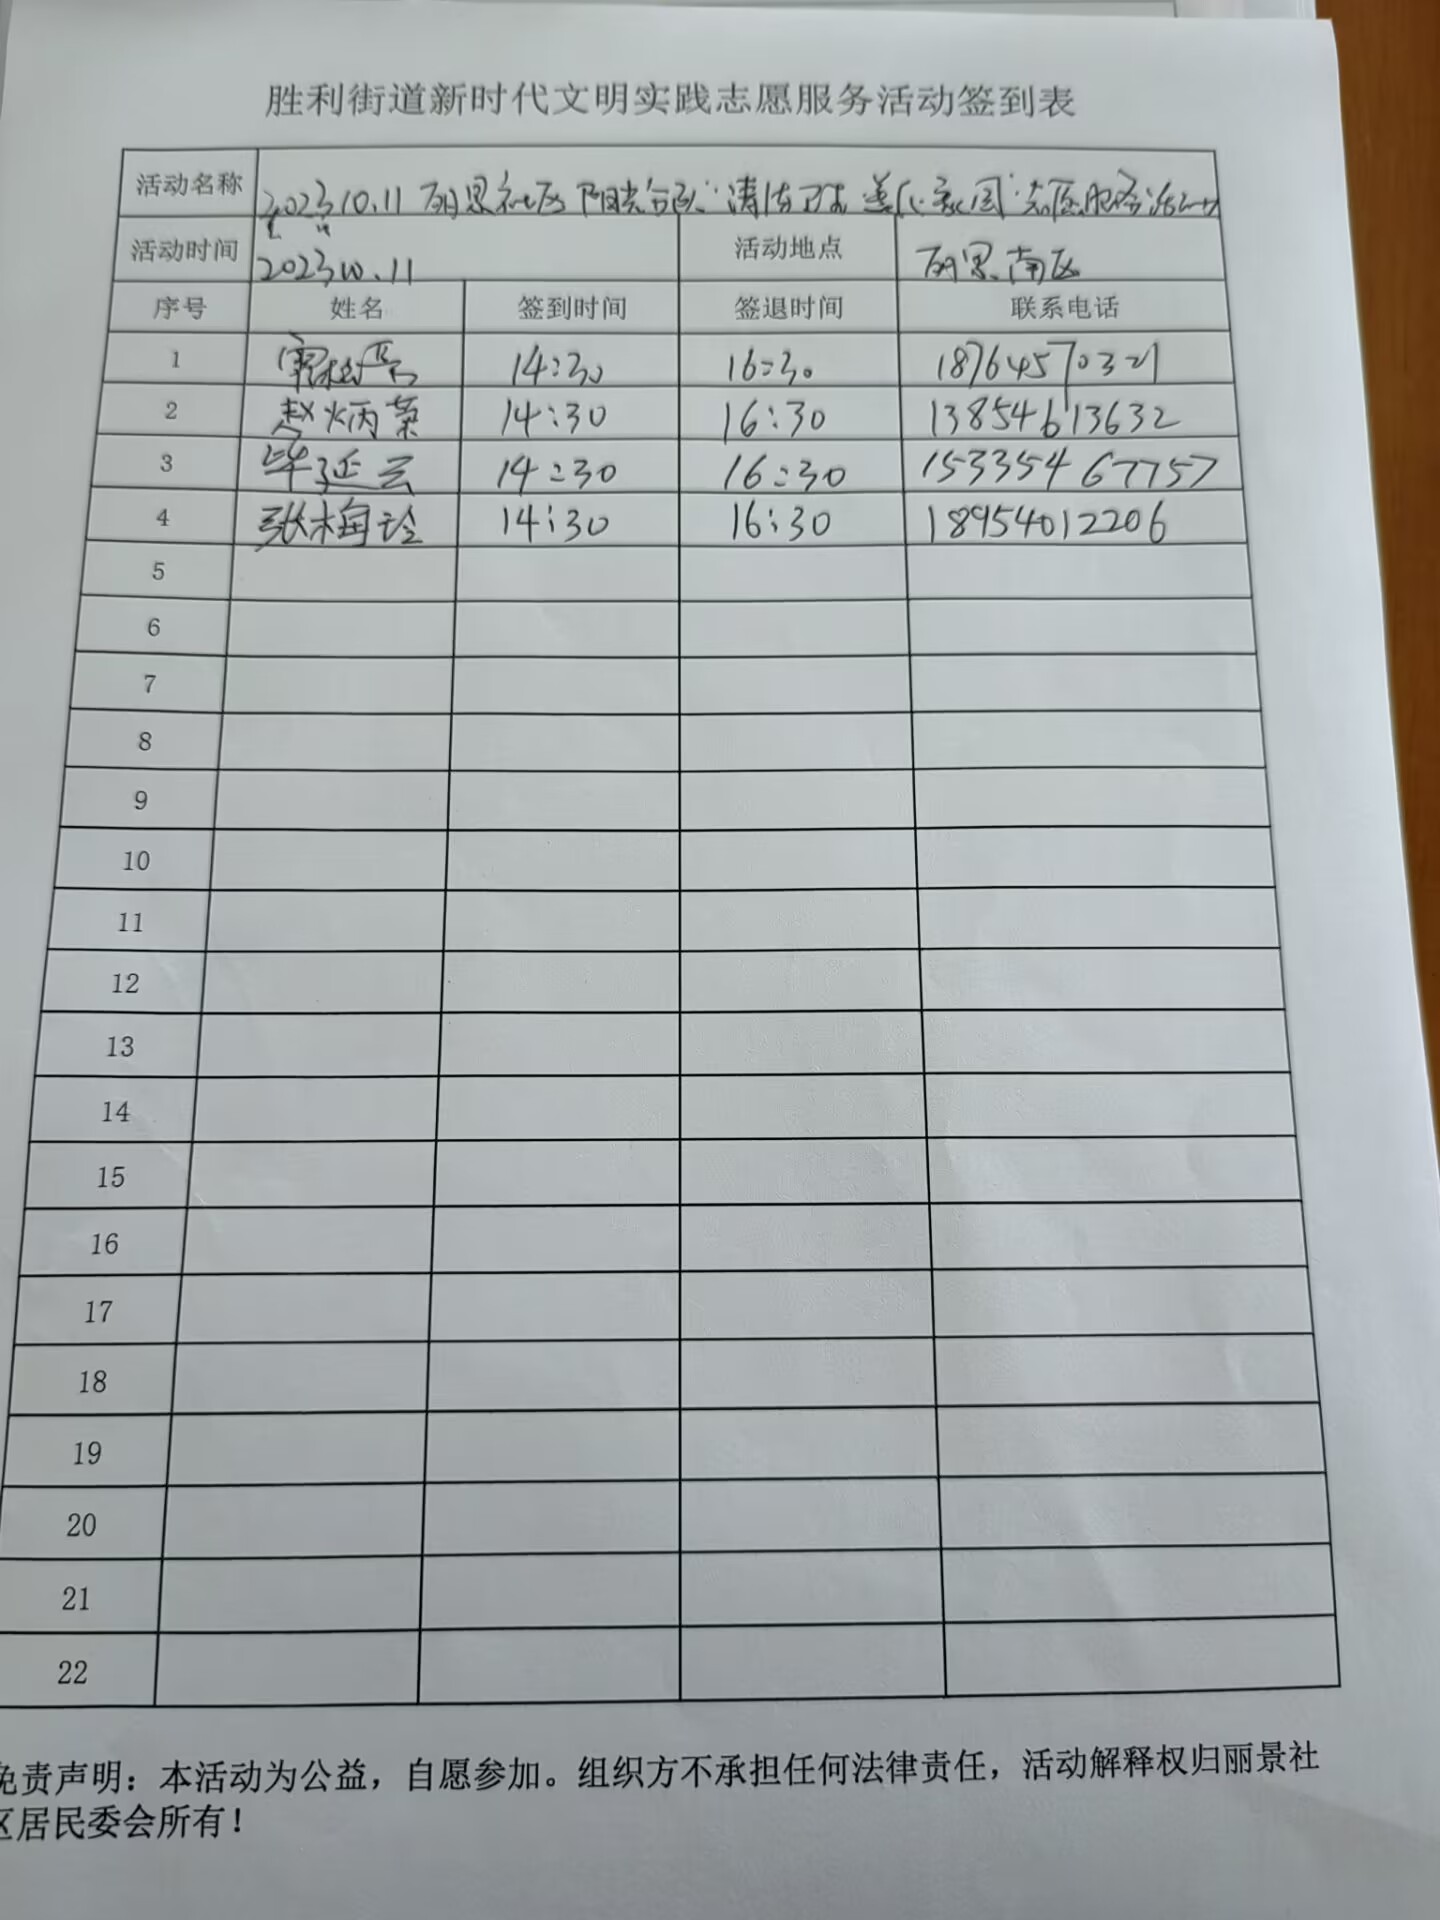 胜利街道新时代文明实践志愿服务活动签到表
活动名称 2023.10.11 丽景社区阳光台区"清洁卫生 美化家园"志愿服务活动
活动时间 2023.10.11 活动地点 丽景南区
序号 姓名 签到时间 签退时间 联系电话
1 14:30 16:30 18764570321
2 赵炳荣 14:30 16:30 13854613632
3 毕延云 14:30 16:30 15335467757
4 张梅玲 14:30 16:30 18954012206
5
6
7
8
9
10
11
12
13
14
15
16
17
18
19
20
21
22
免责声明：本活动为公益，自愿参加。组织方不承担任何法律责任，活动解释权归丽景社
区居民委会所有！